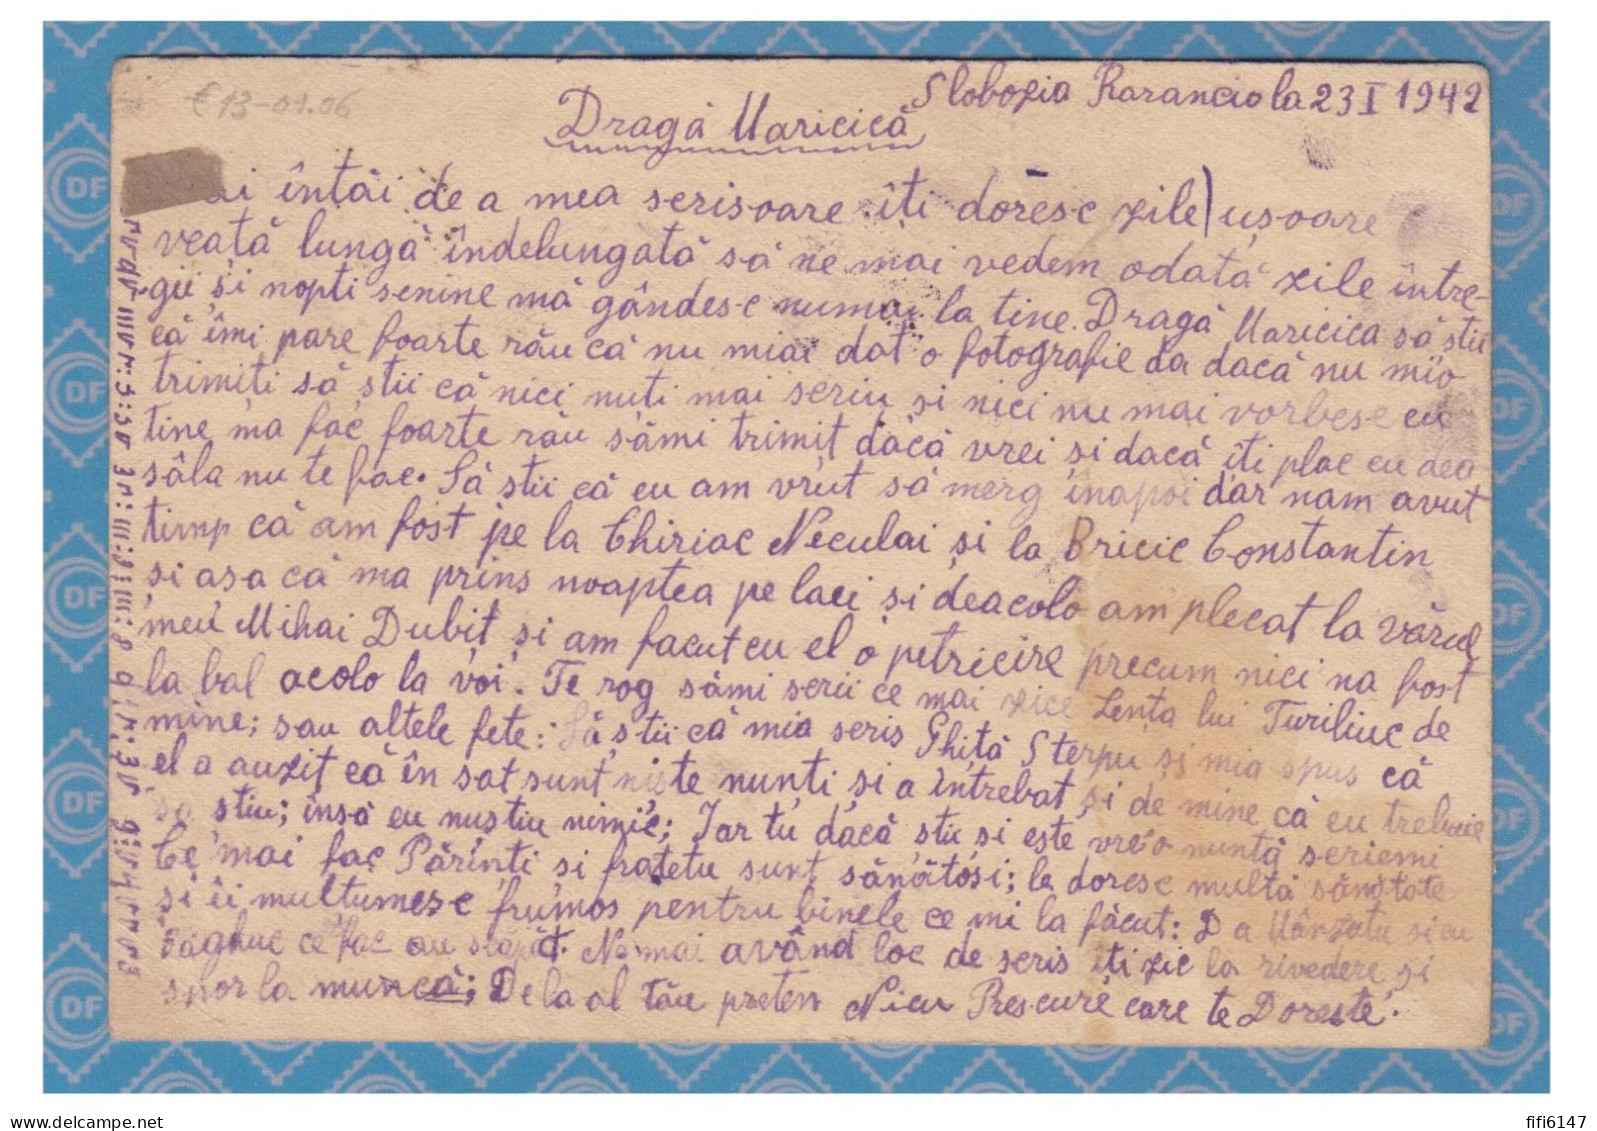 € 13-01.06
Slobozia Rarancio la 23 I 1942
Dragă Maricică
întâi de a mea serisoare îți doresc zile ușoare
veată lungă îndelungată să ne mai vedem odată zile între-
gii și nopti senine mă gândesc numai la tine. Dragă Maricica să stii
că îmi pare foarte rău că nu miai dat o fotografie da dacă nu mio
trimiti să stii că nici nuti mai scriu și nici nu mai vorbesc cu
tine ma fac foarte rău sămi trimit dacă vrei si dacă iti plac cu dea
sâla nu te fac. Să stii că eu am vrut să merg inapoi dar nam avut
timp că am fost pe la Chiriac Neculai și la Bricic Constantin
si asa că ma prins noaptea pe laci și deacolo am plecat la vărul
meu Mihai Dubit și am facut cu el o petricire precum nici na fost
la bal acolo la voi. Te rog sămi scrii ce mai zice Lența lui Turiliuc de
mine; sau altele fete: Să știi că mia scris Ghită Sterpu și mia spus că
el a auzit că în sat sunt niste nunti și a intrebat și de mine că eu trebuie
sa stiu; însă eu nuștiu nimic; Iar tu dacă stii si este vre'o nuntă scriemi
Ce mai fac Părinti si fratetu sunt sănătosi; le doresc multă sănătate
și ii multumesc frumos pentru binele ce mi la făcut: D a Mânzatu si cu
ce fac au scăpat. Ne mai având loc de scris iti zic la rivedere și
spor la muncă; De la al tău preten Nicu Prescure care te Doreste.
DF
delcampe.net
fifi6147